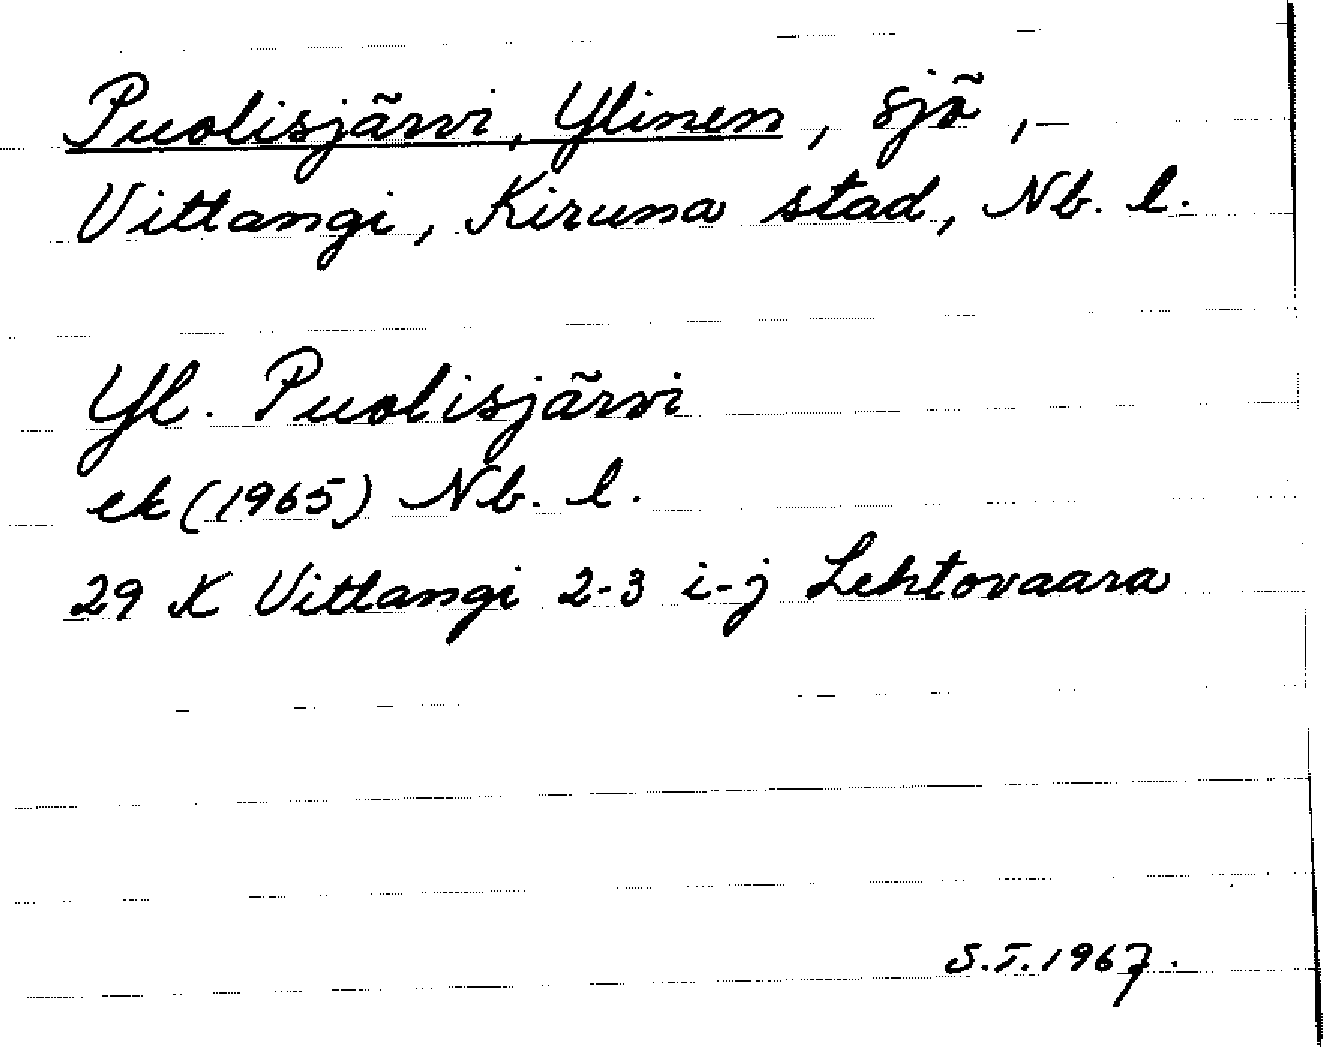 Puolisjärvi, Ylinen, sjö,
Vittangi, Kiruna stad, Nb. l.
Yl. Puolisjärvi
ek (1965) Nb. l.
29 K Vittangi 2-3 i-j Lehtovaara
S.T. 1967.